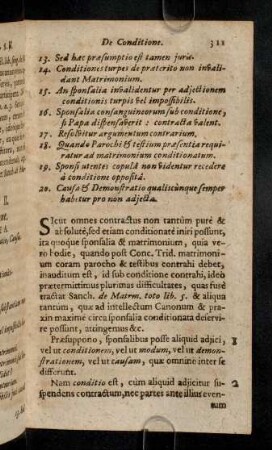 De Conditione. 311
13. Sed hæc præsumptio est tamen juris.
14. Conditiones turpes de præterito non invali-
dant Matrimonium.
15. An sponsalia invalidentur per adjectionem
conditionis turpis vel impossibilis.
16. Sponsalia consanguineorum sub conditione,
si Papa dispensaverit: contracta valent.
17. Resolvitur argumentum contrarium.
18. Quando Parochi & testium præsentia requi-
ratur ad matrimonium conditionatum.
19. Sponsi utentes copulâ non videntur recedere
à conditione oppositâ.
20. Causa & Demonstratio qualiscunque semper
habetur pro non adjecta.
SIcut omnes contractus non tantùm purè &
absolutè, sed etiam conditionatè iniri possunt,
ita quoque sponsalia & matrimonium, quia ve-
rò hodie, quando post Conc. Trid. matrimoni-
um coram parocho & testibus contrahi debet,
inauditum est, id sub conditione contrahi, ideò
prætermittimus plurimas difficultates, quas fusè
tractat Sanch. de Matrm. toto lib. 5. & aliqua
tantùm, quæ ad intellectum Canonum & pra-
xin maximè circa sponsalia conditionata deservi-
re possunt, attingemus &c.
Præsuppono, sponsalibus posse aliquid adjici, 1
vel ut conditionem, vel ut modum, vel ut demon-
strationem, vel ut causam, quæ omnine inter se
differunt.
Nam conditio est, cum aliquid adjicitur su- 2
spendens contractum, nec partes ante illius even-
tum